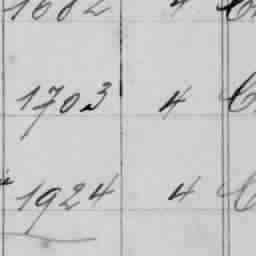 1682 4
1703 4
1924 4